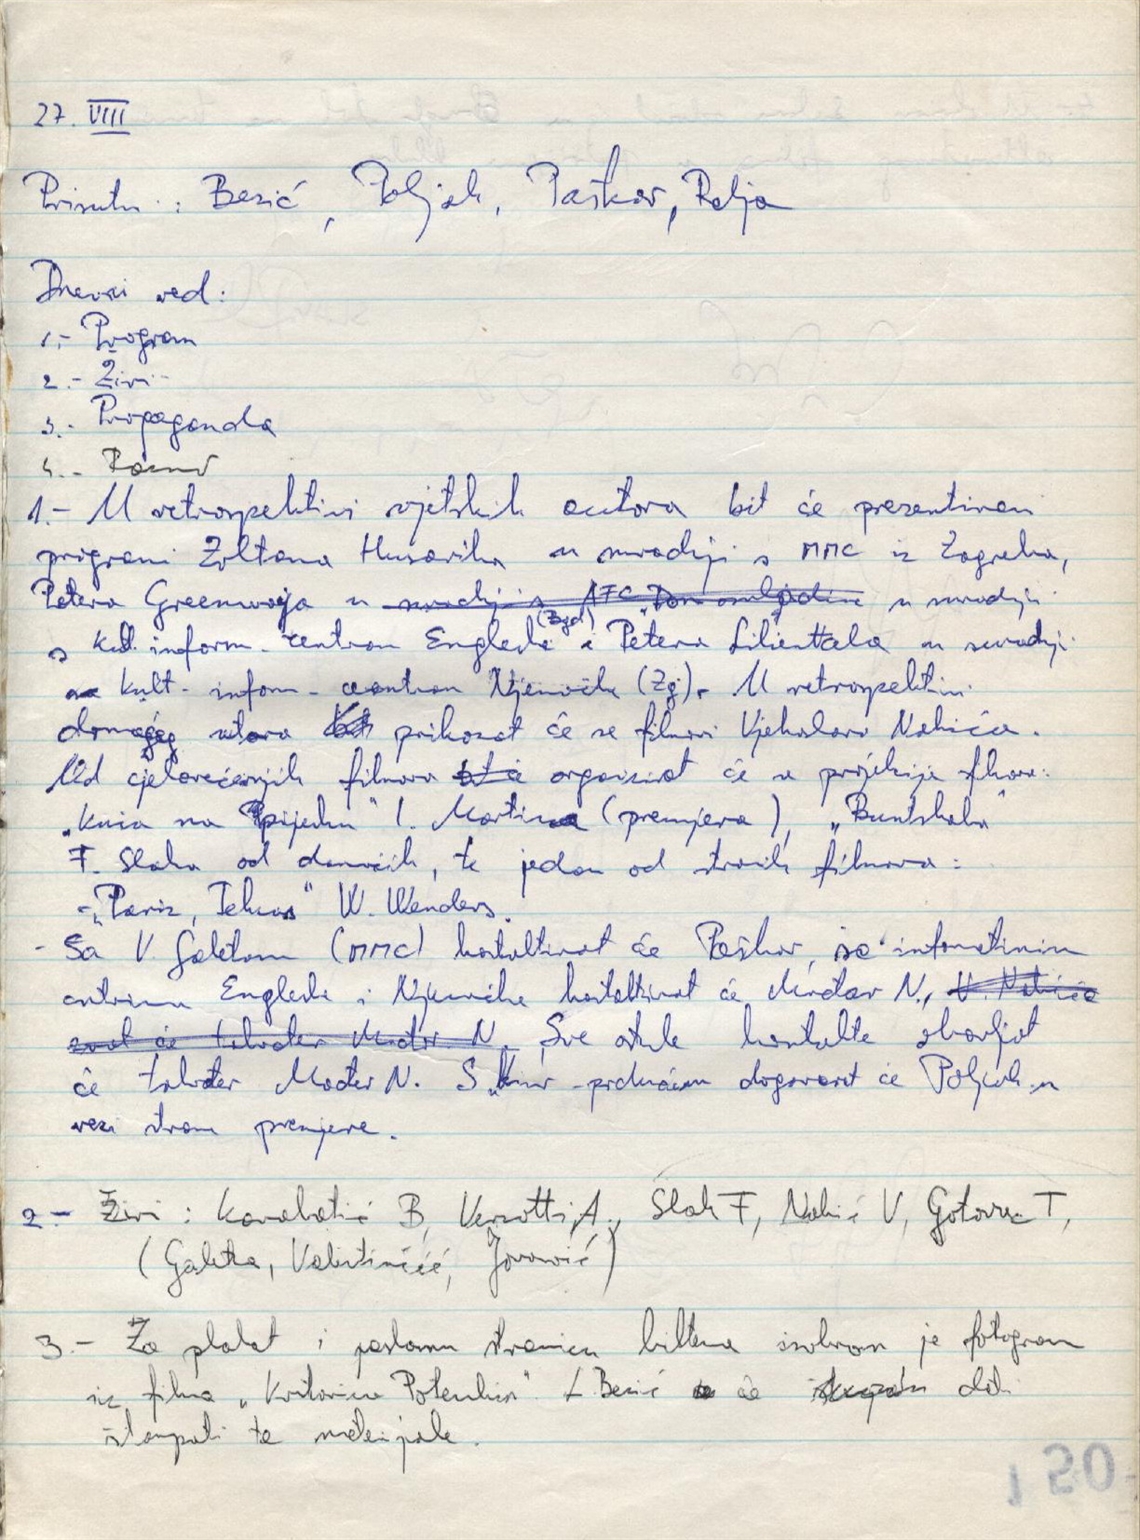 27. VIII
Prisutni : Bezić, Poljak, Paškov, Relja
Dnevni red:
1.- Program
2.- Žiri
3.- Propaganda
4.- Razno
1.- U retrospektivi svjetskih autora bit će prezentirani
programi Zoltana Husarika u suradnji s MMC iz Zagreba,
Petera Greenwaja u suradnji
s kult. inform. centrom Engleske (Bgd) i Petera Lilienttala u suradnji
kult. inform. centrom Njemačke (Zg). U retrospektivi
domaćeg autora prikazat će se filmovi Vjekoslava Nakića.
Od cjelovečernjih filmova organizirat će se projekcije filmova:
„Kuća na pijesku" I. Martinca (premjera), „Butnskala"
F. Slaka od domaćih, te jedan od stranih filmova:
- „Pariz, Tehas" W. Wenders.
- Sa V. Galetom (MMC) kontaktirat će Paškov, sa informativnim
centrima Engleske i Njemačke kontaktirat će Mađar N.,
Sve ostale kontakte obavljat
će također Mađer N. S dogovorit će Poljak u
vezi premjere.
2.- Žiri : B, Verzotti A., Slak F, Nakić V, Gotovac T,
(Galeta, Jovović)
3.- Za plakat i naslovnu stranicu biltena izabran je fotogram
iz filma „ Potemkin" L. Bezić će dati
štampati te materijale.
150